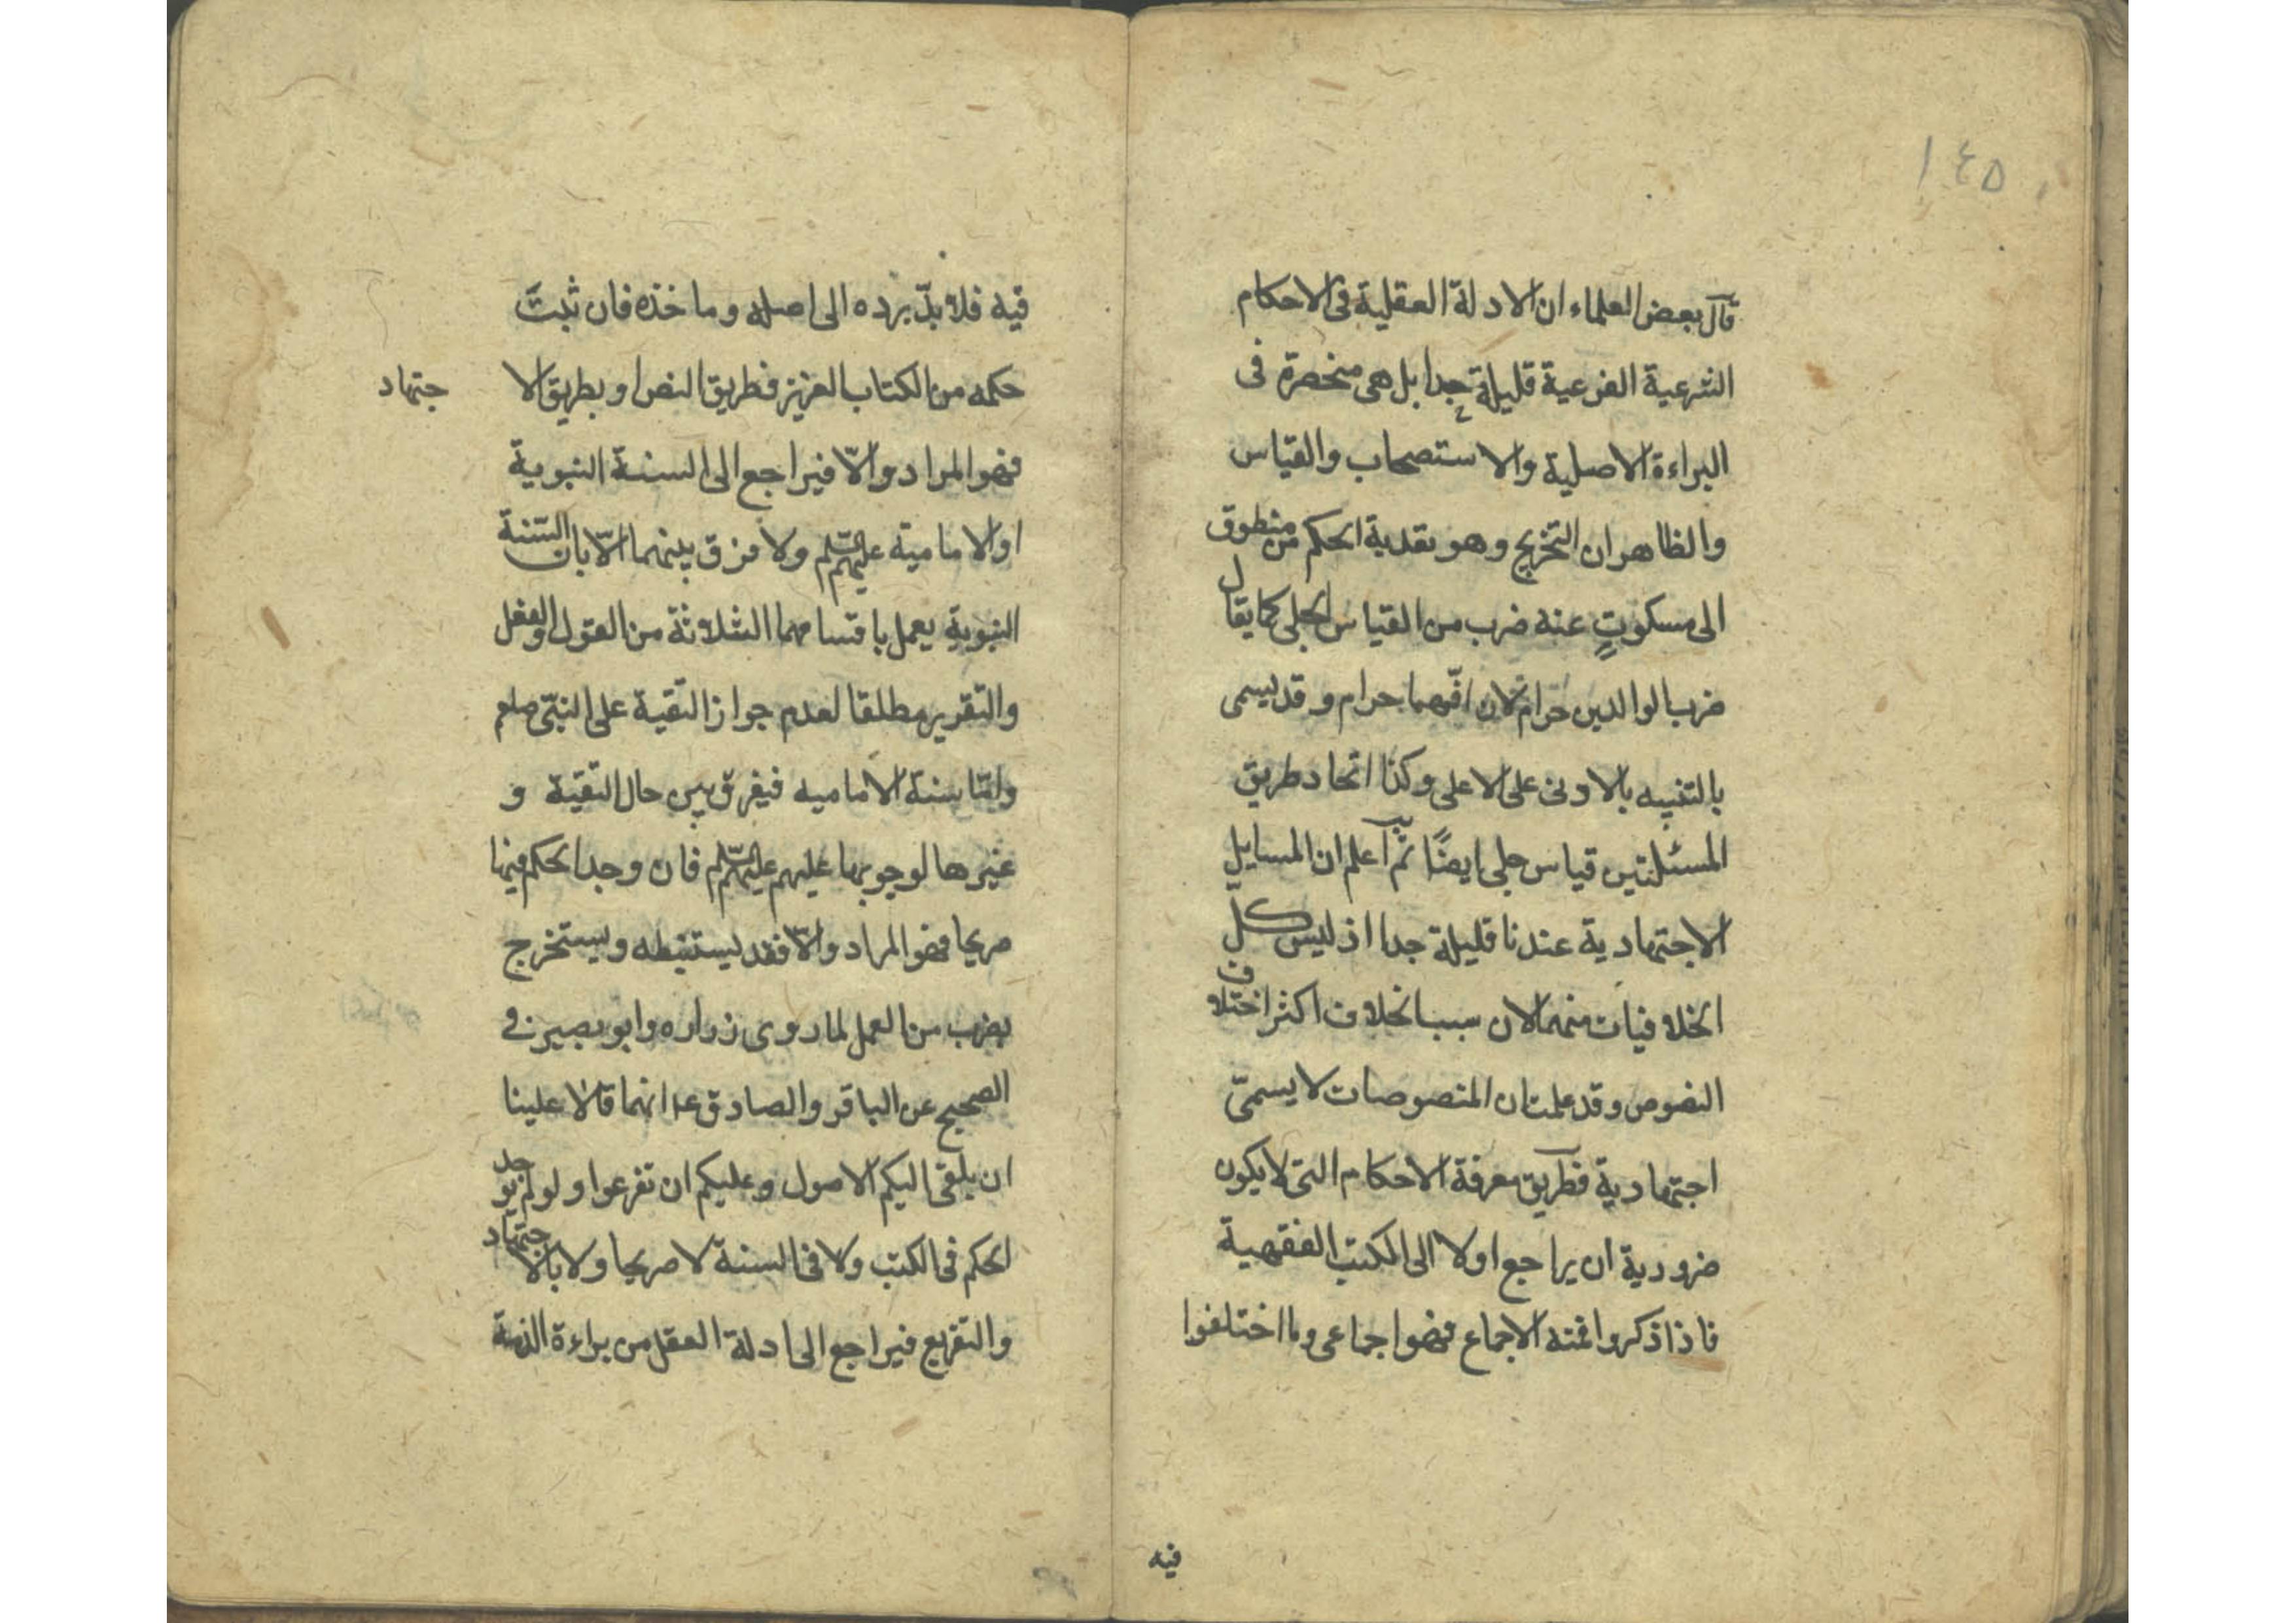 ١٤٥
قال بعض العلماء ان الادلة العقلية فى الاحكام
الشرعية الفرعية قليلة جدا بل هى منحصرة فى
البراءة الاصلية والاستصحاب والقياس
والظاهر ان التخريج وهو تعدية الحكم من منطوق
الى مسكوتٍ عنه ضرب من القياس الجلى كما يقال
ضرب الوالدين حرام لان افّهما حرام وقد يسمى
بالتنبيه بالادنى على الاعلى وكذا اتحاد طريق
المسئلتين قياس جلى ايضًا ثم اعلم ان المسايل
الاجتهادية عندنا قليلة جدا اذ ليس كلّ
الخلافيات منها لان سبب الخلاف اكثر اختلاف
النصوص وقد علمت ان المنصوصات لا يسمىّ
اجتهادية فطريق معرفة الاحكام التى لا يكون
ضرورية ان يراجع اولا الى الكتب الفقهية
فاذا ذكروا فيه الاجماع فهو اجماعى وما اختلفوا
فيه
فيه فلا بدّ برده الى اصله وماخذه فان ثبتَ
حكمه من الكتاب العزيز فطريق النص او بطريق الاجتهاد
فهو المراد والّا فيراجع الى السنة النبوية
او الامامية عليهم السّلم ولا فرق بينهما الّا بان السّنة
النبوية يعمل باقسامهما الثلاثة من القول والفعل
والتّقرير مطلقا لعدم جواز التّقية على النبىّ صلعم
وامّا سنة الامامية فيفرق بين حال التّقيّة و
غيرها لوجوبها عليهم عليهم السّلم فان وجد الحكم فيها
صريحا فهو المراد والّا فقد يستنبطه ويستخرج
بضرب من العمل لما روى زراره وابو بصير فى
الصحيح عن الباقر والصادق ع انهما قالا علينا
ان يلقى اليكم الاصول وعليكم ان تفرعوا ولو لم يوجد
الحكم فى الكتب ولا فى السنة لا صريحا ولا بالاجتهاد
والتفريع فيراجع الى ادلة العقل من براءة الذمة